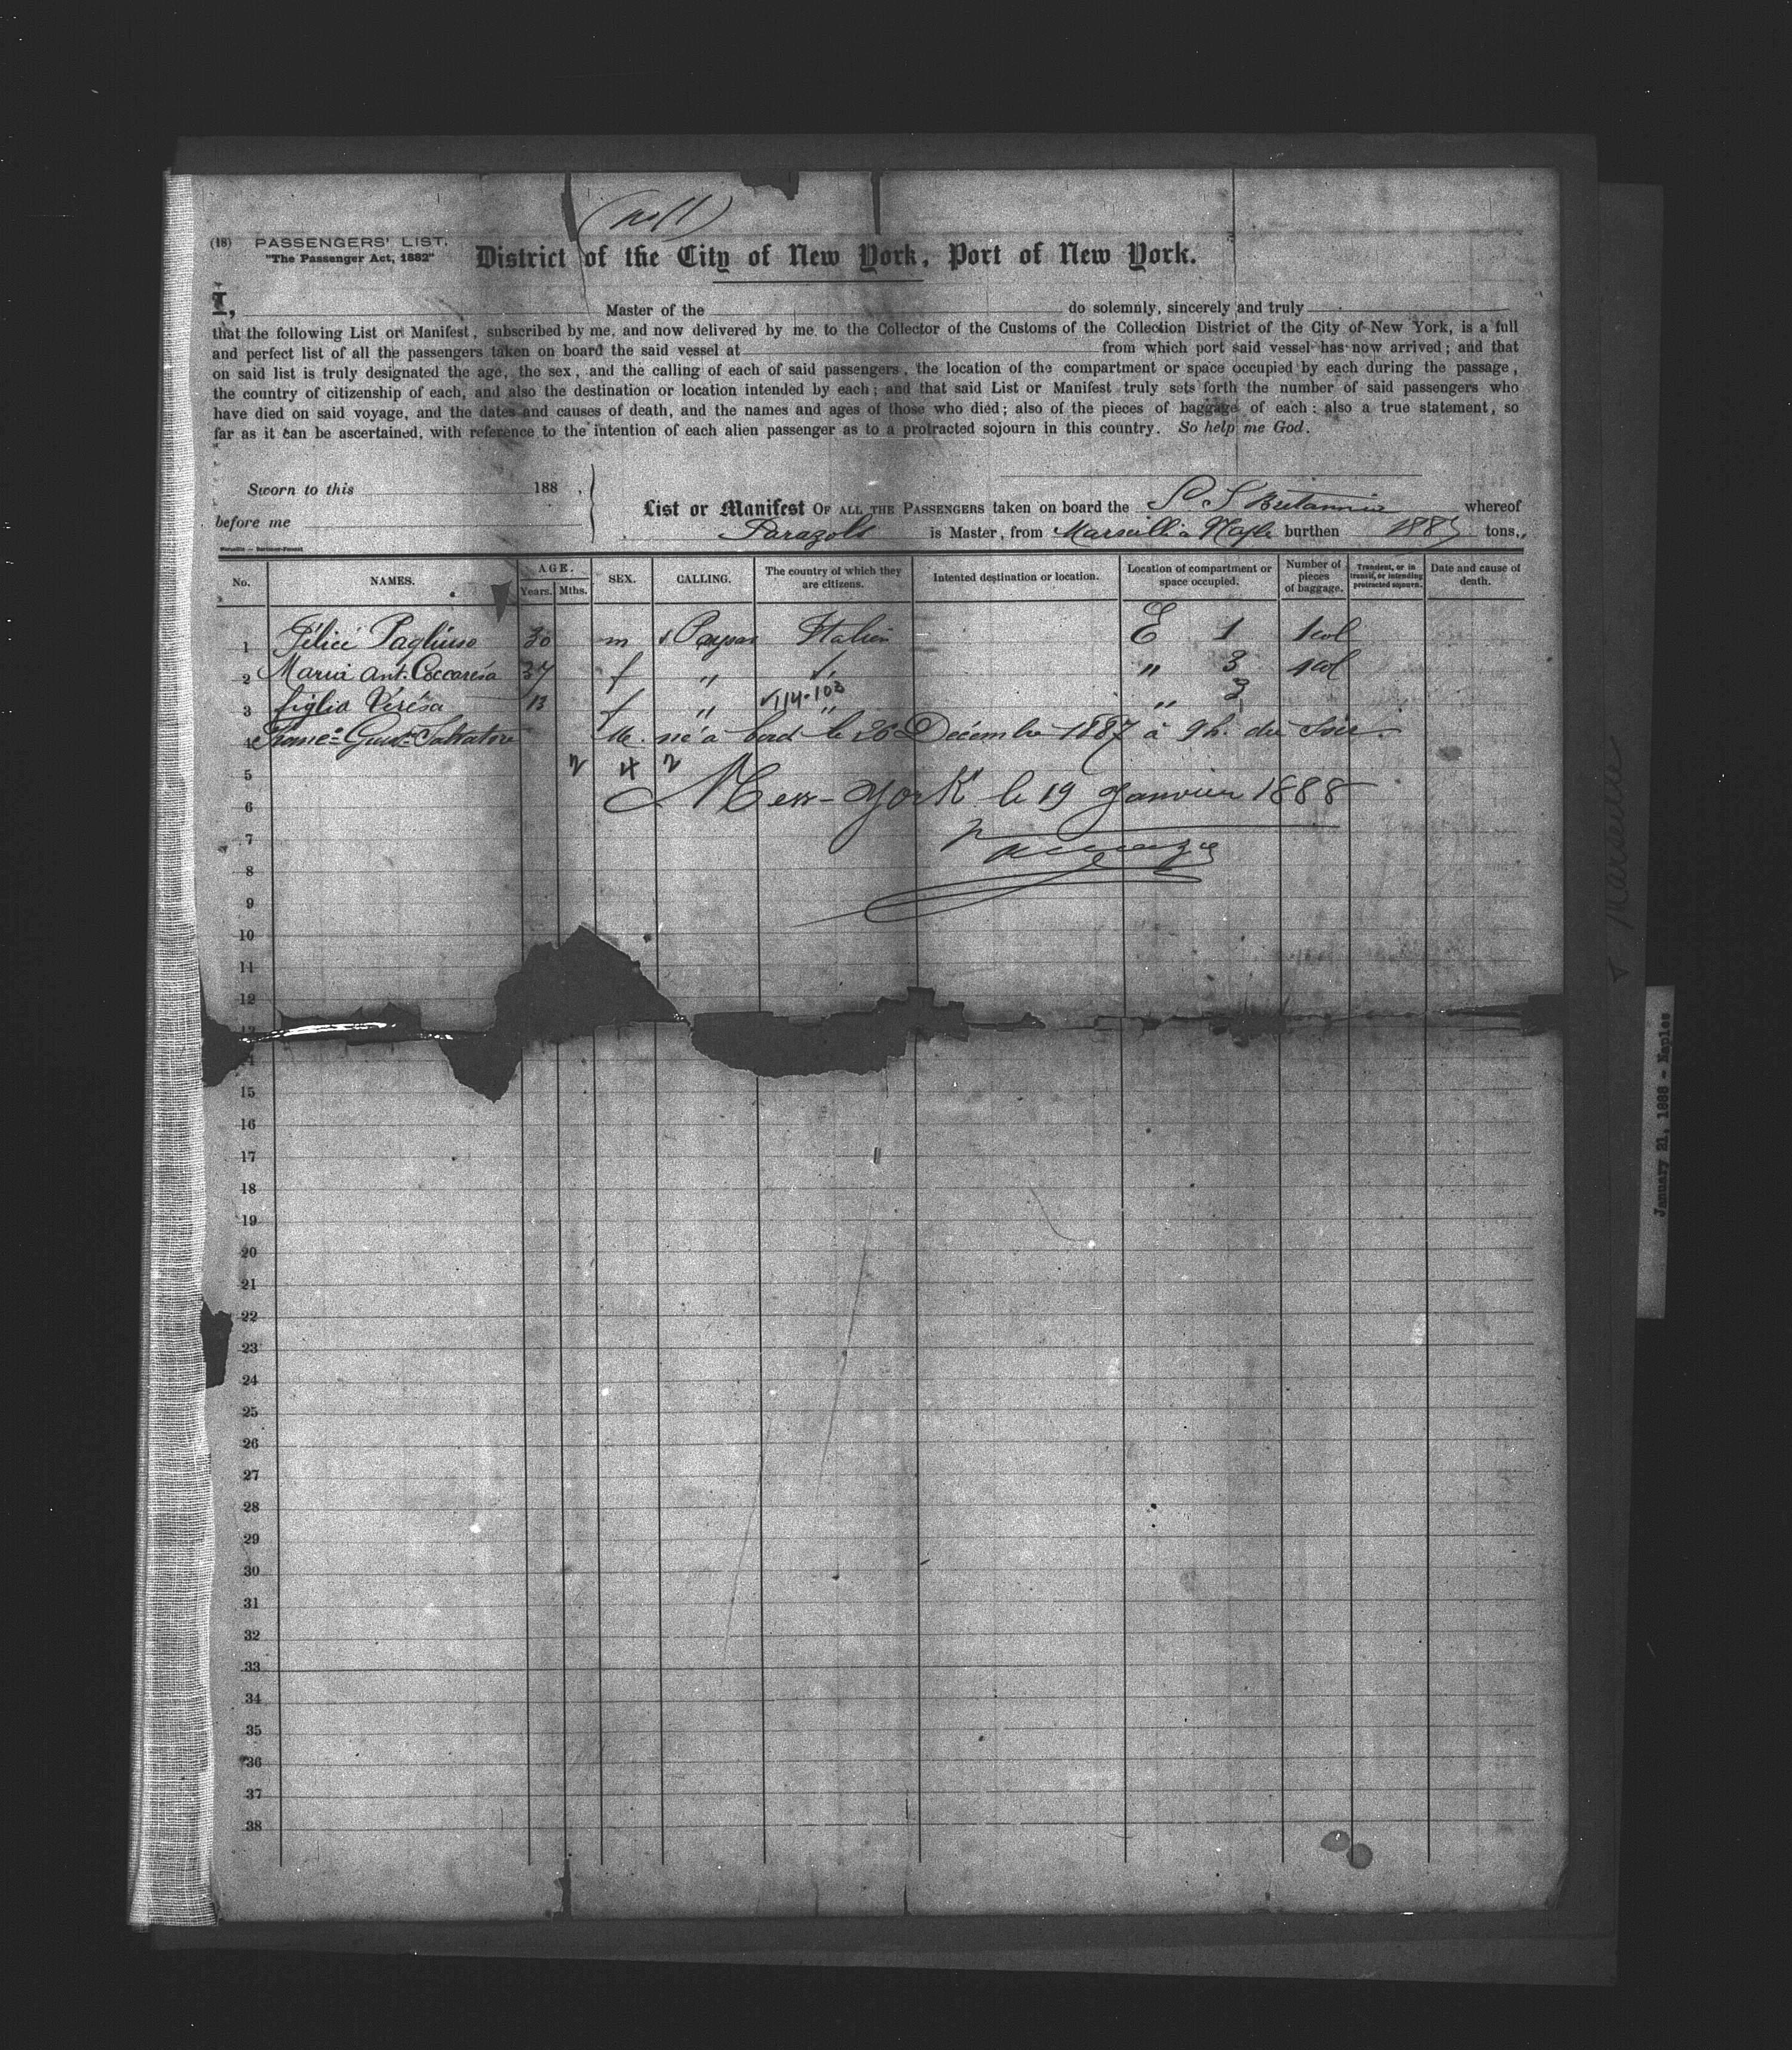 (no 11)
(18) PASSENGERS' LIST.
"The Passenger Act, 1882"
District of the City of New York, Port of New York.
I, Master of the do solemnly, sincerely and truly
that the following List or Manifest, subscribed by me, and now delivered by me to the Collector of the Customs of the Collection District of the City of New York, is a full
and perfect list of all the passengers taken on board the said vessel at from which port said vessel has now arrived; and that
on said list is truly designated the age, the sex, and the calling of each of said passengers, the location of the compartment or space occupied by each during the passage,
the country of citizenship of each, and also the destination or location intended by each; and that said List or Manifest truly sets forth the number of said passengers who
have died on said voyage, and the dates and causes of death, and the names and ages of those who died; also of the pieces of baggage of each: also a true statement, so
far as it can be ascertained, with reference to the intention of each alien passenger as to a protracted sojourn in this country. So help me God.
Sworn to this 188 ,
before me
List or Manifest OF ALL THE PASSENGERS taken on board the S. S Britannia whereof
Parazols is Master, from Marseille à Naple burthen tons.,
No. NAMES. AGE. Years. Mths. SEX. CALLING. The country of which they are citizens. Intented destination or location. Location of compartment or space occupied. Number of pieces of baggage. Transient, or in transit, or intending protracted sojourn. Date and cause of death.
1 Félice Pagliuso 30 m Paysan Italien E 1 1 col
2 Maria Ant. Coccaresa 37 f " " 3 1 col
3 figlia Verésa 13 f " 114-103 " " 3
4 Salvatore M. né à bord le 26 Décembre 1887 à 9 h. du Soir.
2 4 2
5
6 New-York le 19 Janvier 1888
7
8
9
10
11
12
15
16
17
18
19
20
21
22
23
24
25
26
27
28
29
30
31
32
33
34
35
36
37
38
Marseille
January 21, 1888 - Naples